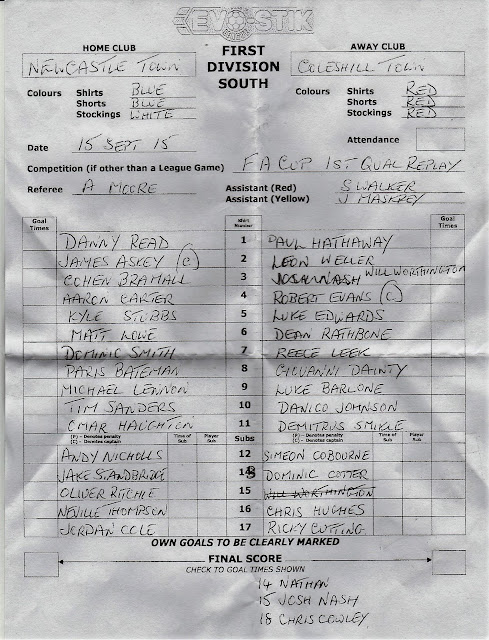 EVO-STIK
HOME CLUB FIRST AWAY CLUB
NEWCASTLE TOWN DIVISION COLESHILL TOWN
SOUTH
Colours Shirts BLUE Colours Shirts RED
Shorts BLUE Shorts RED
Stockings WHITE Stockings RED
Date 15 SEPT 15 Attendance
Competition (if other than a League Game) FA CUP 1ST QUAL REPLAY
Referee A MOORE Assistant (Red) S WALKER
Assistant (Yellow) J MASKREY
Goal Times Shirt Number Goal Times
DANNY READ 1 PAUL HATHAWAY
JAMES ASKEY (C) 2 LEON WELLER
COHEN BRAMALL 3 JOSH NASH WILL WORTHINGTON
AARON CARTER 4 ROBERT EVANS (C)
KYLE STUBBS 5 LUKE EDWARDS
MATT LOWE 6 DEAN RATHBONE
DOMINIC SMITH 7 REECE LEEK
PARIS BATEMAN 8 GIOVANNI DAINTY
MICHAEL LENNON 9 LUKE BARLONE
TIM SANDERS 10 DANICO JOHNSON
OMAR HAUGHTON 11 DEMITRUS SMIKLE
(P) – Denotes penalty (C) – Denotes captain Time of Sub Player Sub Subs (P) – Denotes penalty (C) – Denotes captain Time of Sub Player Sub
ANDY NICHOLLS 12 SIMEON COBOURNE
JAKE STANDBRIDGE 14 DOMINIC COTTER
OLIVER RITCHIE 15 WILL WORTHINGTON
NEVILLE THOMPSON 16 CHRIS HUGHES
JORDAN COLE 17 RICKY CUTTING
OWN GOALS TO BE CLEARLY MARKED
FINAL SCORE
CHECK TO GOAL TIMES SHOWN
14 NATHAN
15 JOSH NASH
18 CHRIS COWLEY